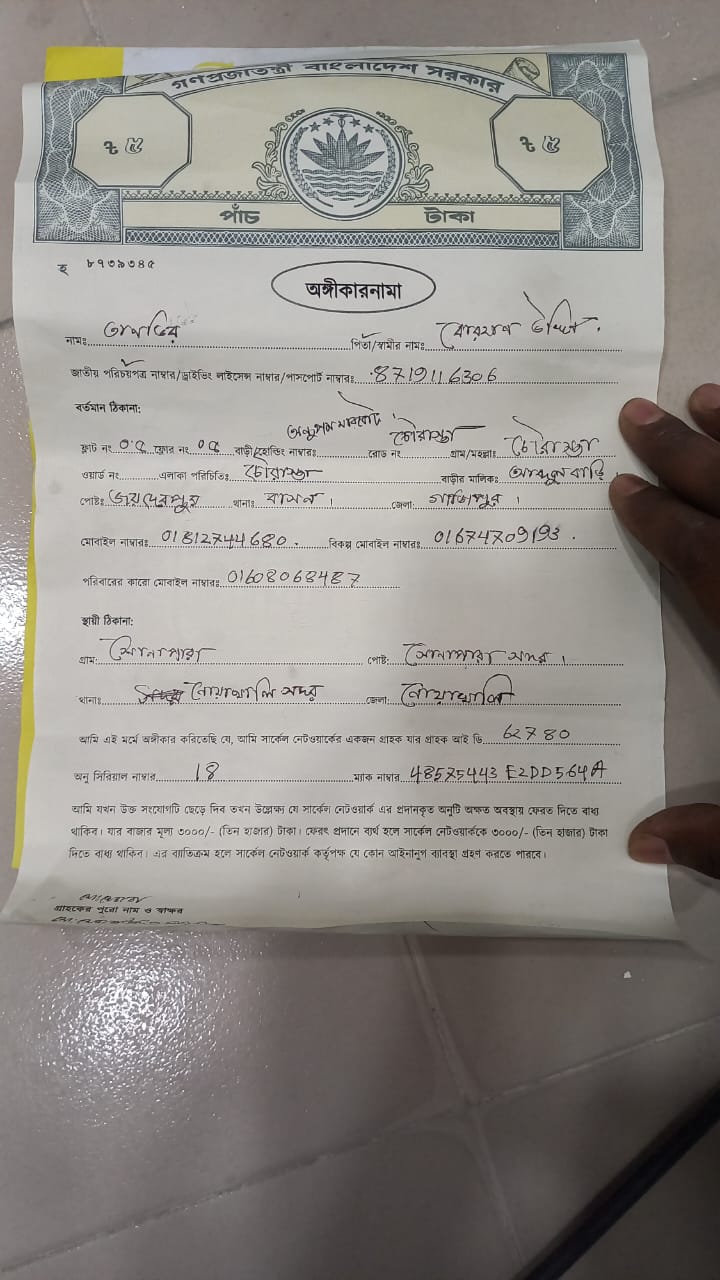 গণপ্রজাতন্ত্রী বাংলাদেশ সরকার
৳ ৫ ৳ ৫
পাঁচ টাকা
হ ৮৭৩৯৩৪৫
অঙ্গীকারনামা
নামঃ তানভির পিতা/স্বামীর নামঃ বোরহান উদ্দিন
জাতীয় পরিচয়পত্র নাম্বার/ড্রাইভিং লাইসেন্স নাম্বার/পাসপোর্ট নাম্বারঃ 8719116306
বর্তমান ঠিকানা:
ফ্লাট নং ০৫ ফ্লোর নং ০৫ বাড়ী/হোল্ডিং নাম্বারঃ অনুপম মার্কেট রোড নং চৌরাস্তা গ্রাম/মহল্লাঃ চৌরাস্তা
ওয়ার্ড নং এলাকা পরিচিতিঃ চৌরাস্তা বাড়ীর মালিকঃ
পোষ্টঃ জয়দেবপুর থানাঃ বাসন। জেলা: গাজিপুর।
মোবাইল নাম্বারঃ 01812744680. বিকল্প মোবাইল নাম্বারঃ 01674709193.
পরিবারের কারো মোবাইল নাম্বারঃ 01608068487
স্থায়ী ঠিকানা:
গ্রাম: সোনাপুরা পোষ্ট: সোনাপুরা সদর।
থানাঃ নোয়াখালি সদর জেলা: নোয়াখালি
আমি এই মর্মে অঙ্গীকার করিতেছি যে, আমি সার্কেল নেটওয়ার্কের একজন গ্রাহক যার গ্রাহক আই ডি 62780
অনু সিরিয়াল নাম্বার 18 ম্যাক নাম্বার 48575443 E2DD564A
আমি যখন উক্ত সংযোগটি ছেড়ে দিব তখন উল্লেক্ষ্য যে সার্কেল নেটওয়ার্ক এর প্রদানকৃত অনুটি অক্ষত অবস্থায় ফেরত দিতে বাধ্য
থাকিব। যার বাজার মূল্য ৩০০০/- (তিন হাজার) টাকা। ফেরৎ প্রদানে ব্যর্থ হলে সার্কেল নেটওয়ার্ককে ৩০০০/- (তিন হাজার) টাকা
দিতে বাধ্য থাকিব। এর ব্যাতিক্রম হলে সার্কেল নেটওয়ার্ক কর্তৃপক্ষ যে কোন আইনানুগ ব্যাবস্থা গ্রহণ করতে পারবে।
গ্রাহকের পুরো নাম ও স্বাক্ষর